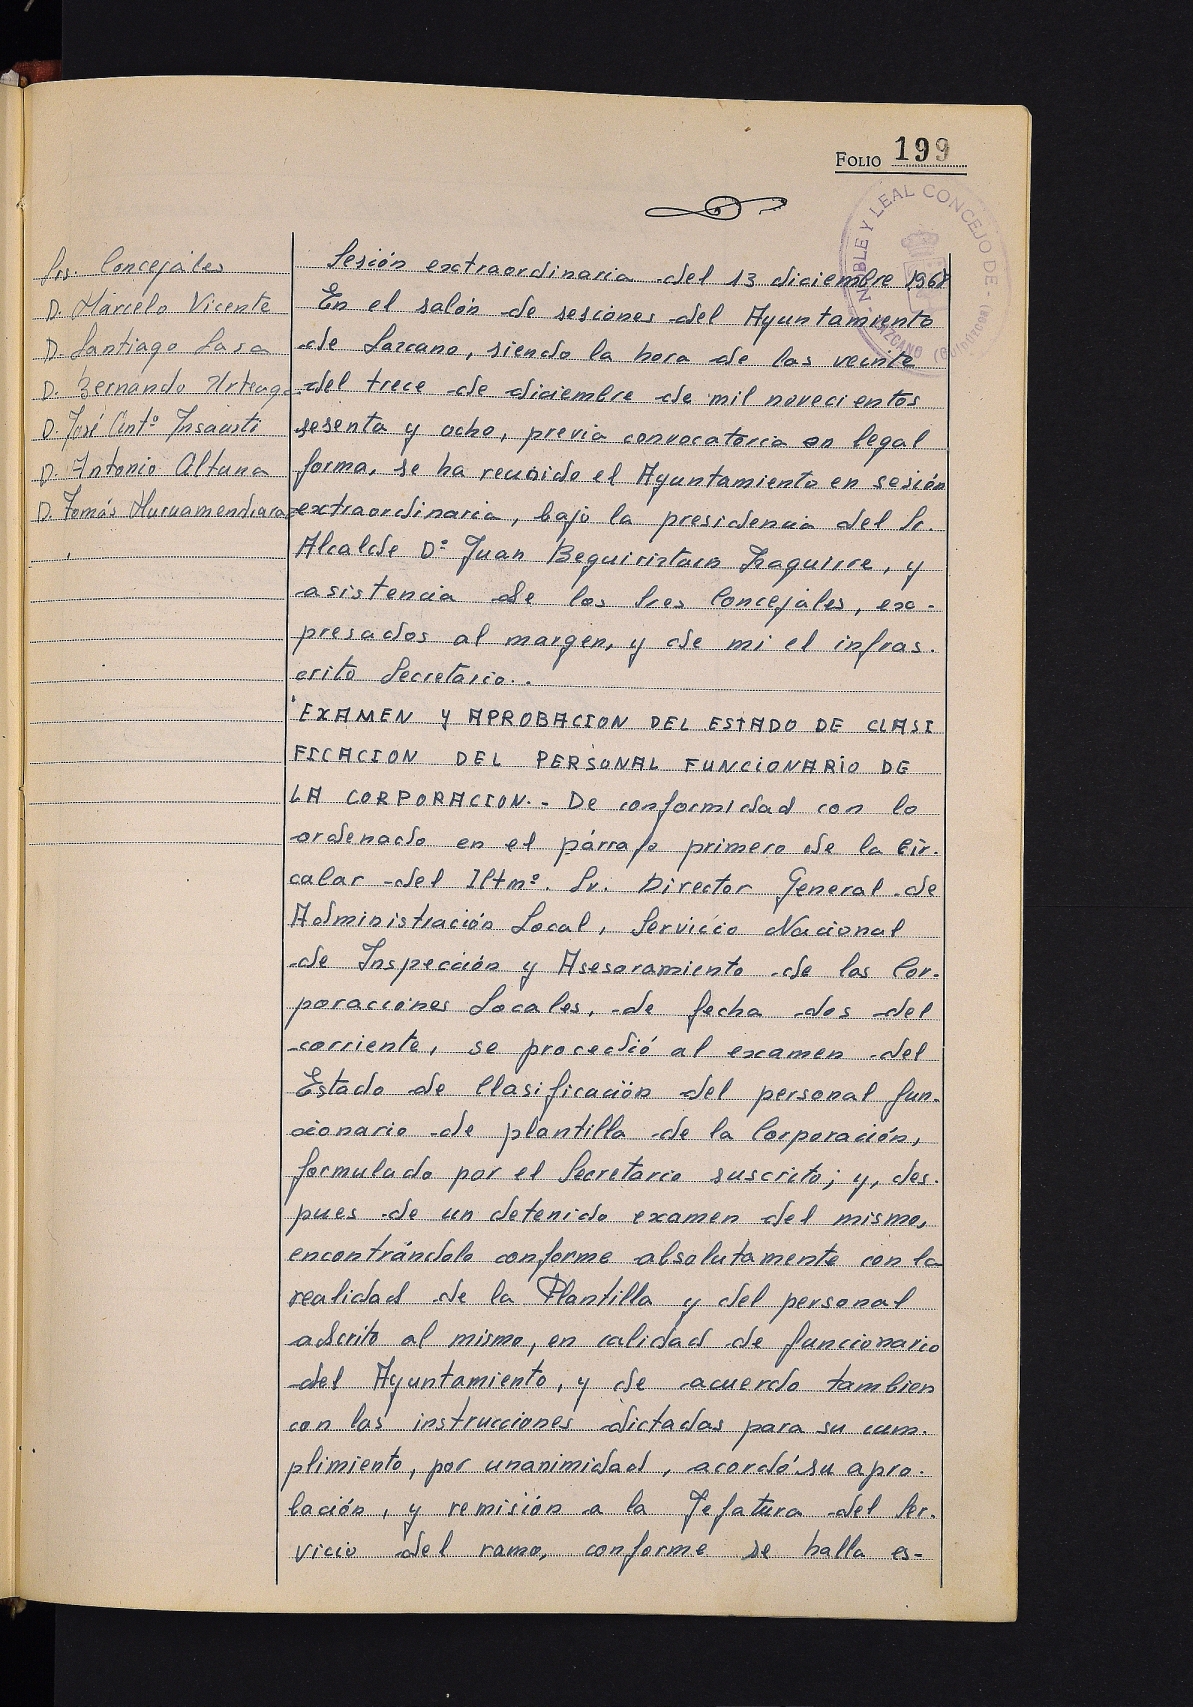 FOLIO 199
NOBLE Y LEAL CONCEJO DE - LAZCANO (Guipúzcoa)
Srs. Concejáles
D. Márcelo Vicente
D. Santiago Lasa
D. Bernardo Urteaga
D. José Antº Insausti
D. Antonio Altuna
D. Tomás Muruamendiaraz
Sesión extraordinaria del 13 diciembre 1968
En el salón de sesiones del Ayuntamiento
de Lazcano, siendo la hora de las veinte
del trece de diciembre de mil novecientos
sesenta y ocho, previa convocatoria en legal
forma, se ha reunido el Ayuntamiento en sesión
extraordinaria, bajo la presidencia del Sr.
Alcalde Dº Juan Beguiristain Izaguirre, y
asistencia de los Sres Concejáles, ex-
presados al margen, y de mi el infras-
crito Secretario..
EXAMEN Y APROBACION DEL ESTADO DE CLASI
FICACION DEL PERSONAL FUNCIONARIO DE
LA CORPORACION.- De conformidad con lo
ordenado en el párrafo primero de la Cir-
cular del Iltmº. Sr. Director General de
Administración Local, Servicio Nacional
de Inspección y Asesoramiento de las Cor-
poraciones Locales, de fecha dos del
corriente, se procedió al examen del
Estado de Clasificación del personal fun-
cionario de plantilla de la Corporación,
formulado por el Secretario suscrito; y, des-
pues de un detenido examen del mismo,
encontrándolo conforme absolutamente con la
realidad de la Plantilla y del personal
adscrito al mismo, en calidad de funcionario
del Ayuntamiento, y de acuerdo tambien
con las instrucciones dictadas para su cum-
plimiento, por unanimidad, acordó su apro-
bación, y remisión a la Jefatura del Ser-
vicio del ramo, conforme se halla es-